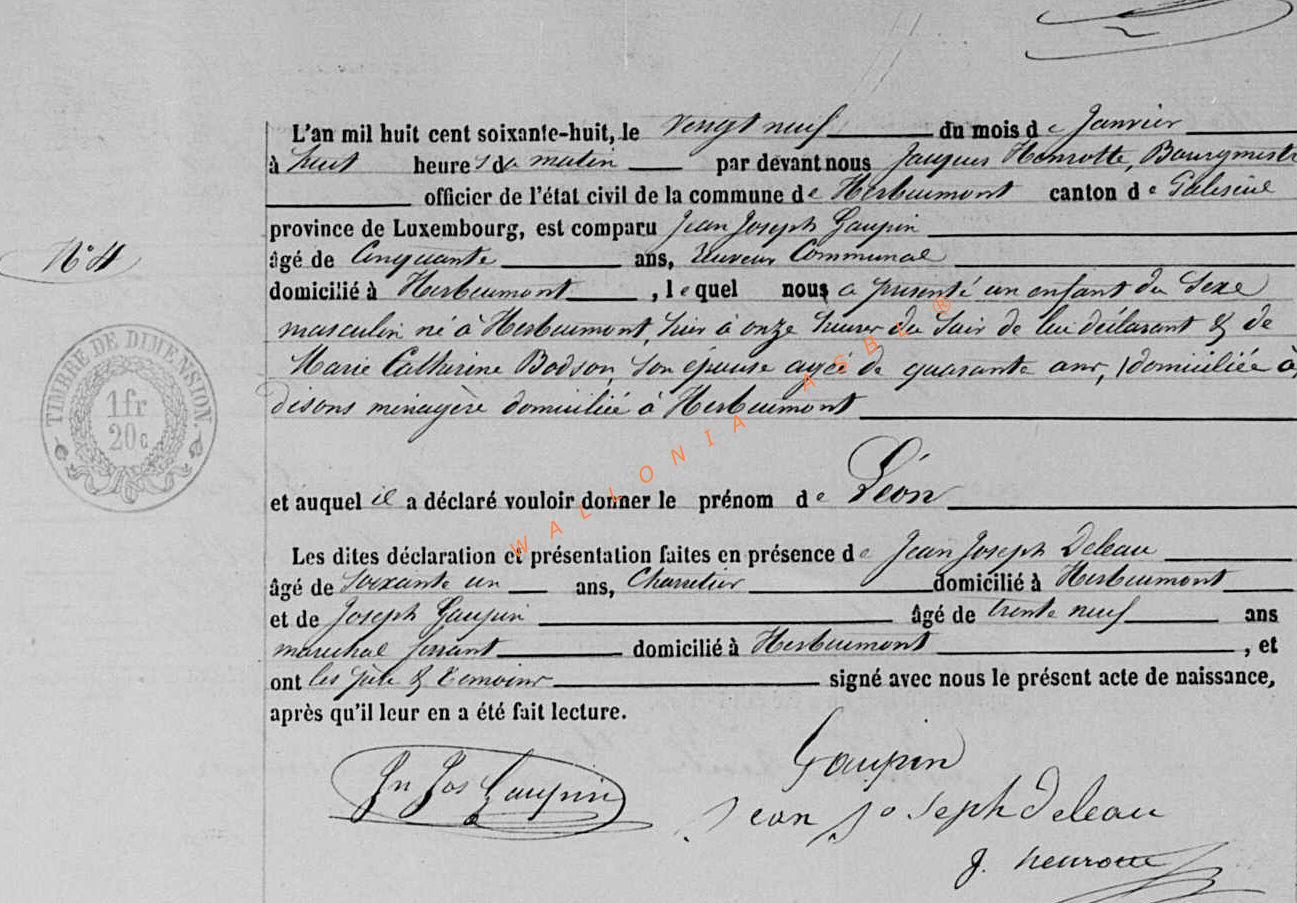 L'an mil huit cent soixante-huit, le vengt neuf du mois de Janvier
à huit heures du matin par devant nous Jacques Henrotte, Bourgmestre
officier de l'état civil de la commune de Herbeumont canton de Paliseul
province de Luxembourg, est comparu Jean Joseph Gaupin
N° 4
âgé de Cinquante ans, Receveur Communal
domicilié à Herbeumont, lequel nous a présenté un enfant du Sexe
masculin né à Herbeumont, hier à onze heures du Soir de lui déclarant & de
Marie Catherine Bodson, Son épouse agée de quarante ans, (domiciliée à)
disons ménagère domiciliée à Herbeumont
TIMBRE DE DIMENSION.
1 fr
20 c
et auquel il a déclaré vouloir donner le prénom de Léon
Les dites déclaration et présentation faites en présence de Jean Joseph Deleau
âgé de Soixante un ans, Charretier domicilié à Herbeumont
et de Joseph Gaupin âgé de trente neuf ans
maréchal ferrant domicilié à Herbeumont, et
ont les père & témoins signé avec nous le présent acte de naissance,
après qu'il leur en a été fait lecture.
Jn Jos Gaupin
Gaupin
Jean Joseph Deleau
J. henrotte
WALLONIA ASBL ®